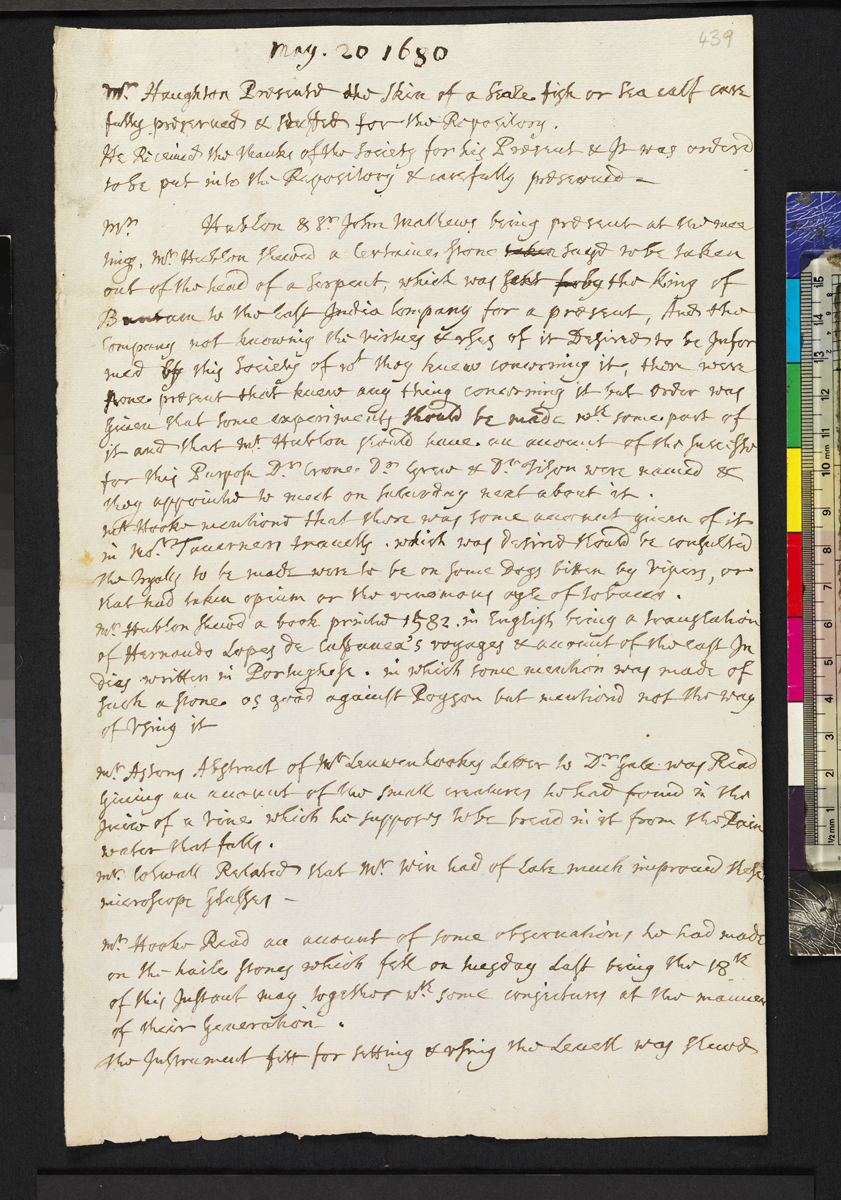 439
May. 20 1680
Mr. Haughton Presented the skin of a Seale fish or sea calf care
fully preserved & stuffed for the Repository.
He Received the thanks of the Society for his Present & It was orderd
to be put into the Repository & carefully preserued
Mr. Hublon & Sr. John Mathews being present at the mee
ting. Mr Hublon shewd a Certaine stone taken sayd to be taken
out of the head of a serpent, which was sent for by the King of
Bantam to the East India Company for a present, And the
Company not knowing the virtues & vses of it Desired to be Infor
med by this Society of wt they knew concerning it, there were
none present that knew any thing concerning it but order was
given that some experiments should be made wth some part of
it and that Mr. Hublon should haue an account of the successe
for this Purpose Dr. Crone. Dr Grew & Dr. Tison were named &
they appointed to meet on saturday next about it.
Mr Hooke mentiond that there was some account giuen of it
in Mor. Taverners trauells. which was desired should be consulted
the tryalls to be made were to be on some Dogs bitten by vipers, or
that had taken opium or the venemous oyle of tobacco.
Mr Hublon shewd a book printed 1582. in English being a translation
of Hernando Lopes de Castaneda's voyages & account of the East In
dies written in Portughese. in which some mention was made of
such a stone as good against Poyson but mentiond not the way
of vsing it
Mr. Astons Abstract of Mr Leuwenhookes Letter to Dr. Gale was Read
Giuing an account of the small creatures he had found in the
Juice of a vine which he supposes to be bread in it from the Rain
water that falls.
Mr. Colwall Related that Mr. Win had of Late much improued these
microscope glasses
Mr. Hooke Read an account of some observations he had made
on the haile stones which fell on tuesday Last being the 18th
of this Instant may together wth some conjectures at the manner
of their Generation.
the Instrument fitt for setting & vsing the Leuell was shewd